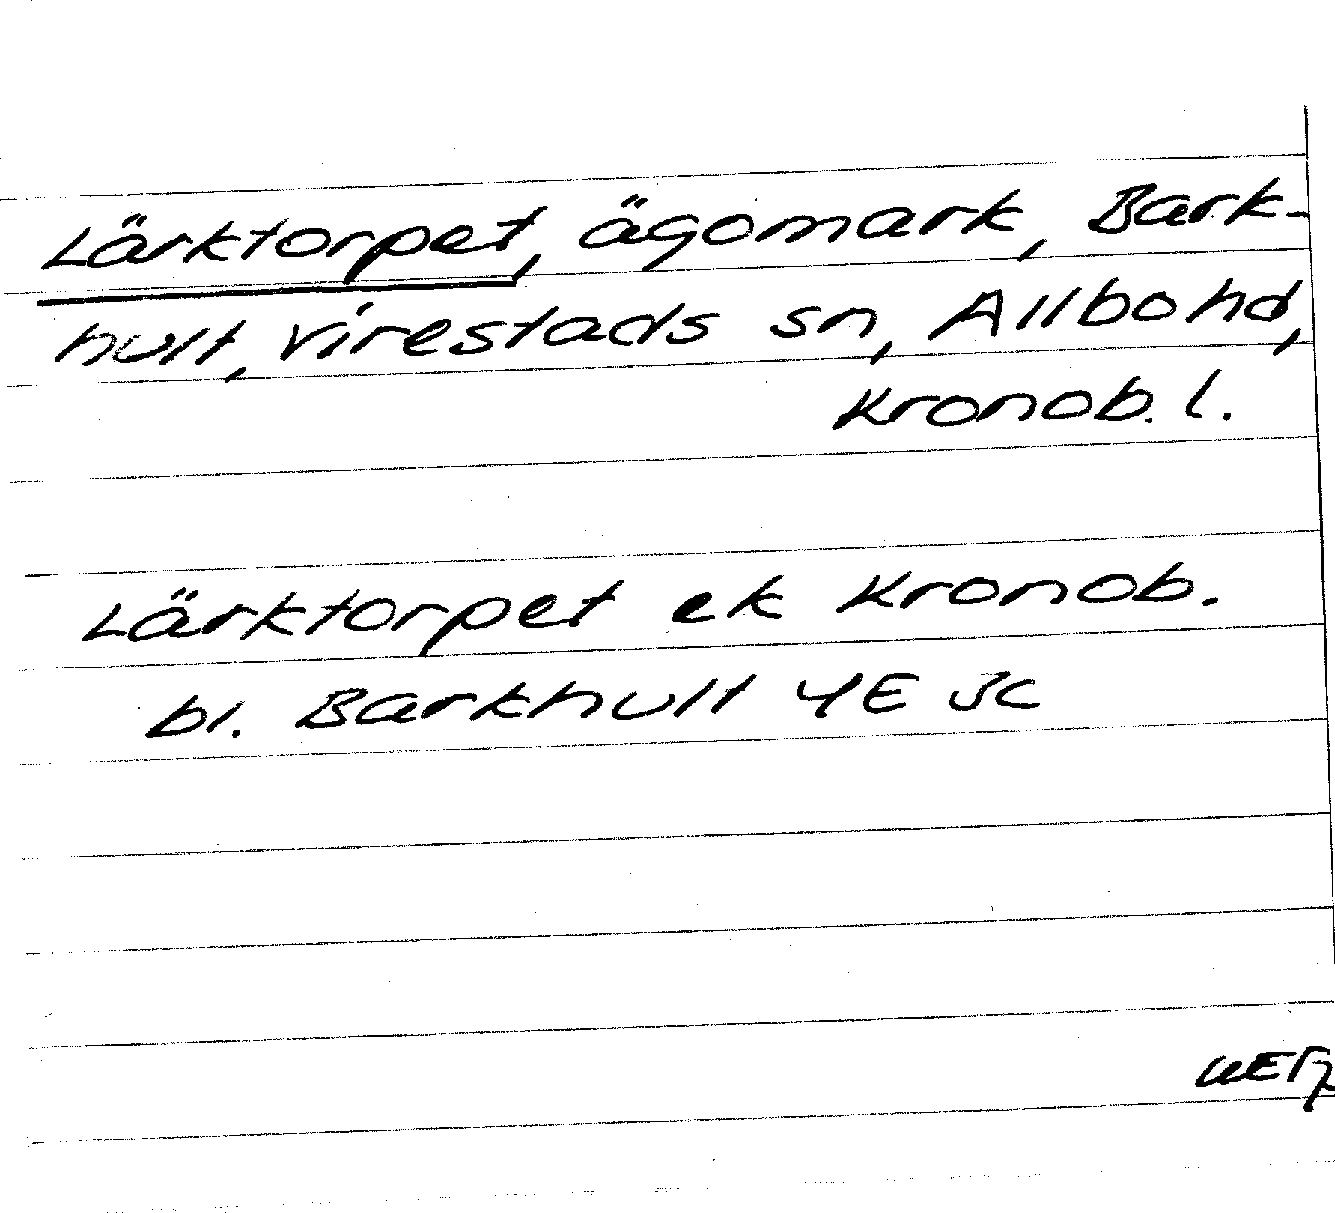 Lärktorpet, ägomark, Bark-
hult, Virestads sn, Allbohd,
Kronob. l.
Lärktorpet ek Kronob.
bl. Barkhult 4E 3c